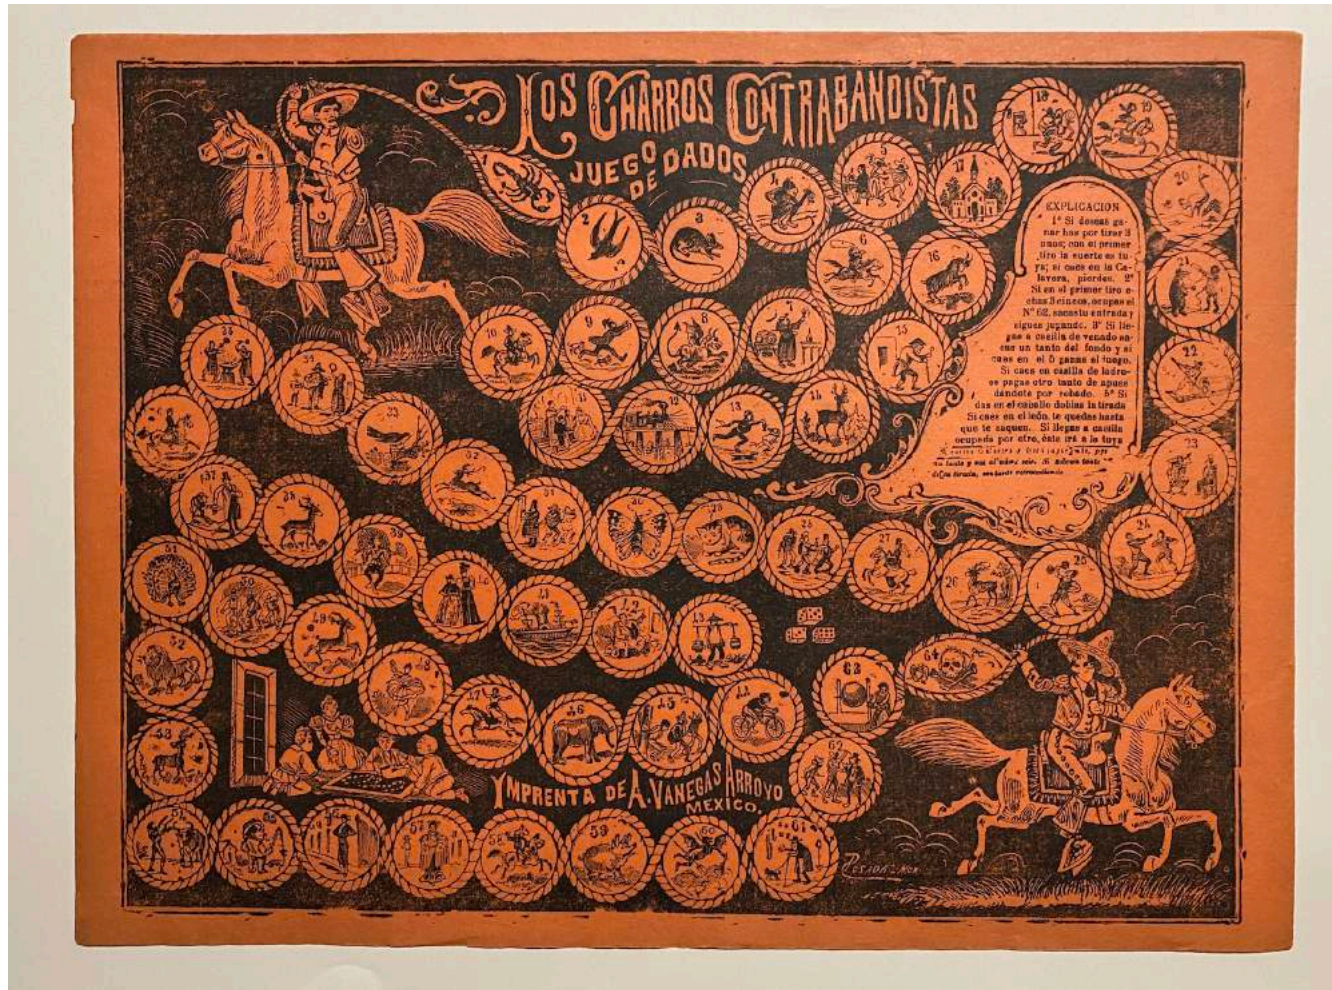 LOS CHARROS CONTRABANDISTAS
JUEGO DE DADOS
EXPLICACION
1ª Si deseas ga-
nar has por tirar 3
unos; con el primer
tiro la suerte es tu-
ya; si caes en la Ca-
lavera, pierdes. 2ª
Si en el primer tiro e-
chas 3 cincos, ocupas el
Nº 62, sacas tu entrada y
sigues jugando. 3ª Si lle-
gas a casilla de venado sa-
cas un tanto del fondo y si
caes en el 5 ganas el fuego.
Si caes en casilla de ladro-
es pagas otro tanto de apues
dándote por robado. 5ª Si
das en el caballo doblas la tirada
Si caes en el león, te quedas hasta
que te saquen. Si llegas a casilla
ocupada por otro, éste irá a la tuya
2
3
4
5
6
7
8
9
10
11
12
13
14
15
16
17
18
19
20
21
22
23
24
25
26
27
28
29
30
31
32
33
34
35
36
37
38
39
40
41
42
43
44
45
46
47
48
49
50
51
52
53
54
56
57
58
59
60
61
62
63
64
YMPRENTA DE A. VANEGAS ARROYO
MEXICO.
POSADA